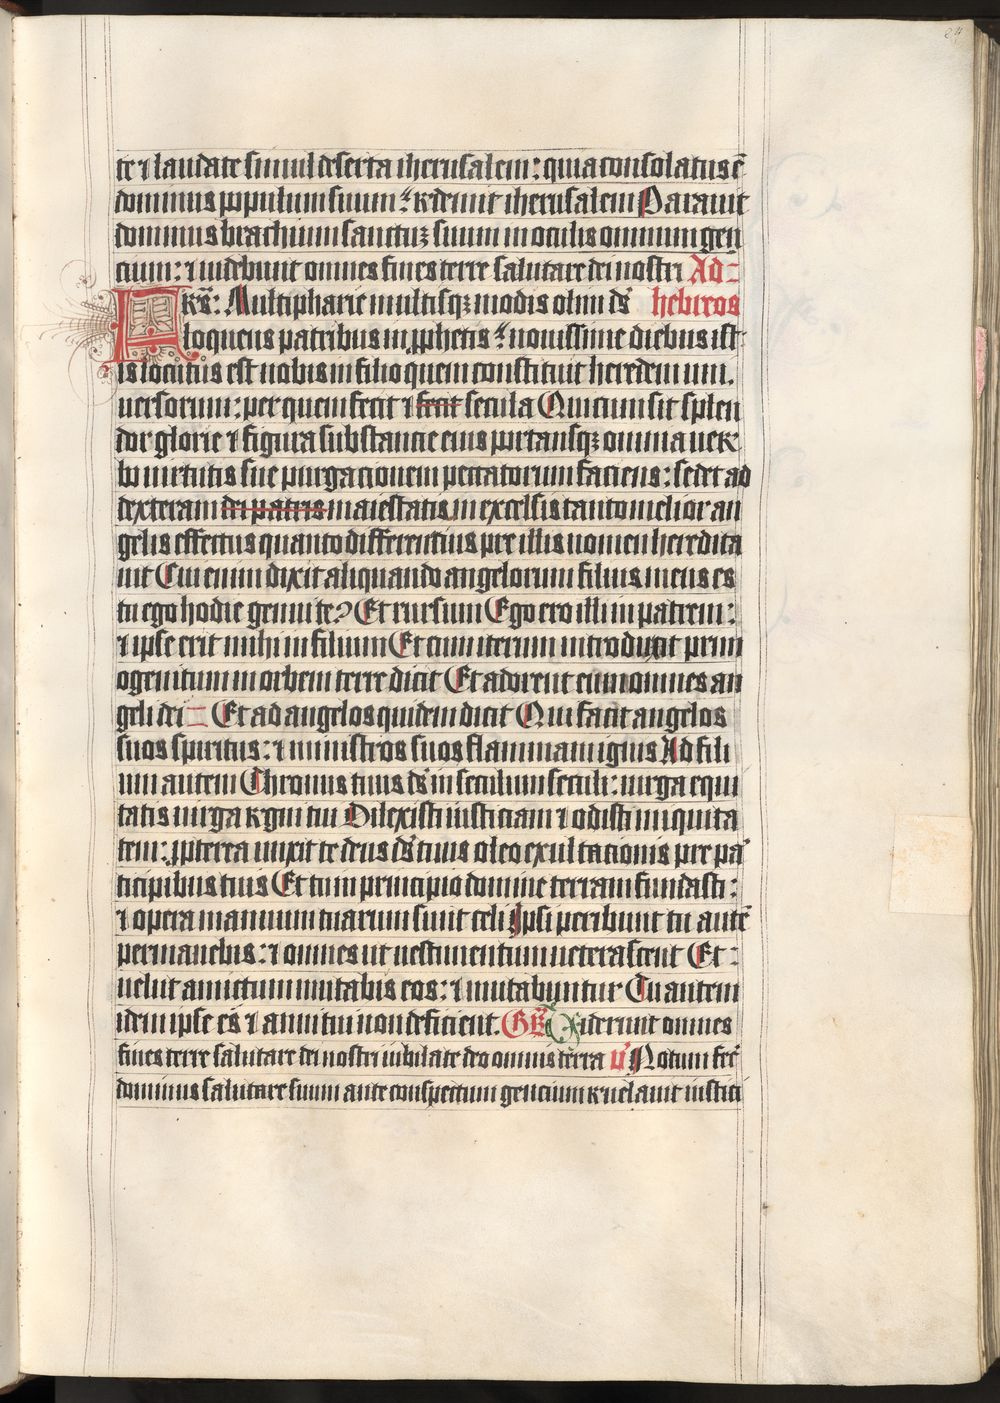 24
te ⁊ laudate simul deserta iherusalem: quia consolatus ē
dominus populum suum: ⁊ redemit iherusalem Parauit
dominus brachium sanctuꝫ suum in oculis omnium gen
cium: ⁊ uidebunt omnes fines terre salutare dei nostri Ad
Frēs: Multipharie multisqꝫ modis olim ds̄ hebreos
loquens patribus in ꝓphetis: nouissime diebus ist
is locutus est nobis in filio quem constituit heredem uni
uersorum: per quem fecit ⁊ fecit secula Qui cum sit splen
dor glorie ⁊ figura substancie eius portansqꝫ omnia uer
bo uirtutis sue purgacionem peccatorum faciens: sedet ad
dexteram dei patris maiestatis in excelsis tanto melior an
gelis effectus quanto differentius pre illis nomen heredita
uit Cui enim dixit aliquando angelorum filius meus es
tu ego hodie genui te? Et rursum Ego ero illi in patrem:
⁊ ipse erit mihi in filium Et cum iterum introduxit prim
ogenitum in orbem terre dicit Et adorent eum omnes an
geli dei Et ad angelos quidem dicit Qui facit angelos
suos spiritus: ⁊ ministros suos flammam ignis Ad fili
um autem Thronus tuus ds̄ in seculum seculi: uirga equi
tatis uirga regni tui Dilexisti iusticiam ⁊ odisti iniquita
tem: ꝓpterea unxit te deus ds̄ tuus oleo exultacionis pre par
ticipibus tuis Et tu in principio domine terram fundasti:
⁊ opera manuum tuarum sunt celi Ipsi peribunt tu autē
permanebis: ⁊ omnes ut uestimentum ueterascent Et
uelut amictum mutabis eos: ⁊ mutabuntur Tu autem
idem ipse es ⁊ anni tui non deficient. GR Viderunt omnes
fines terre salutare dei nostri iubilate deo omnis terra V Notum fec̄
dominus salutare suum ante conspectum gencium reuelauit iustici